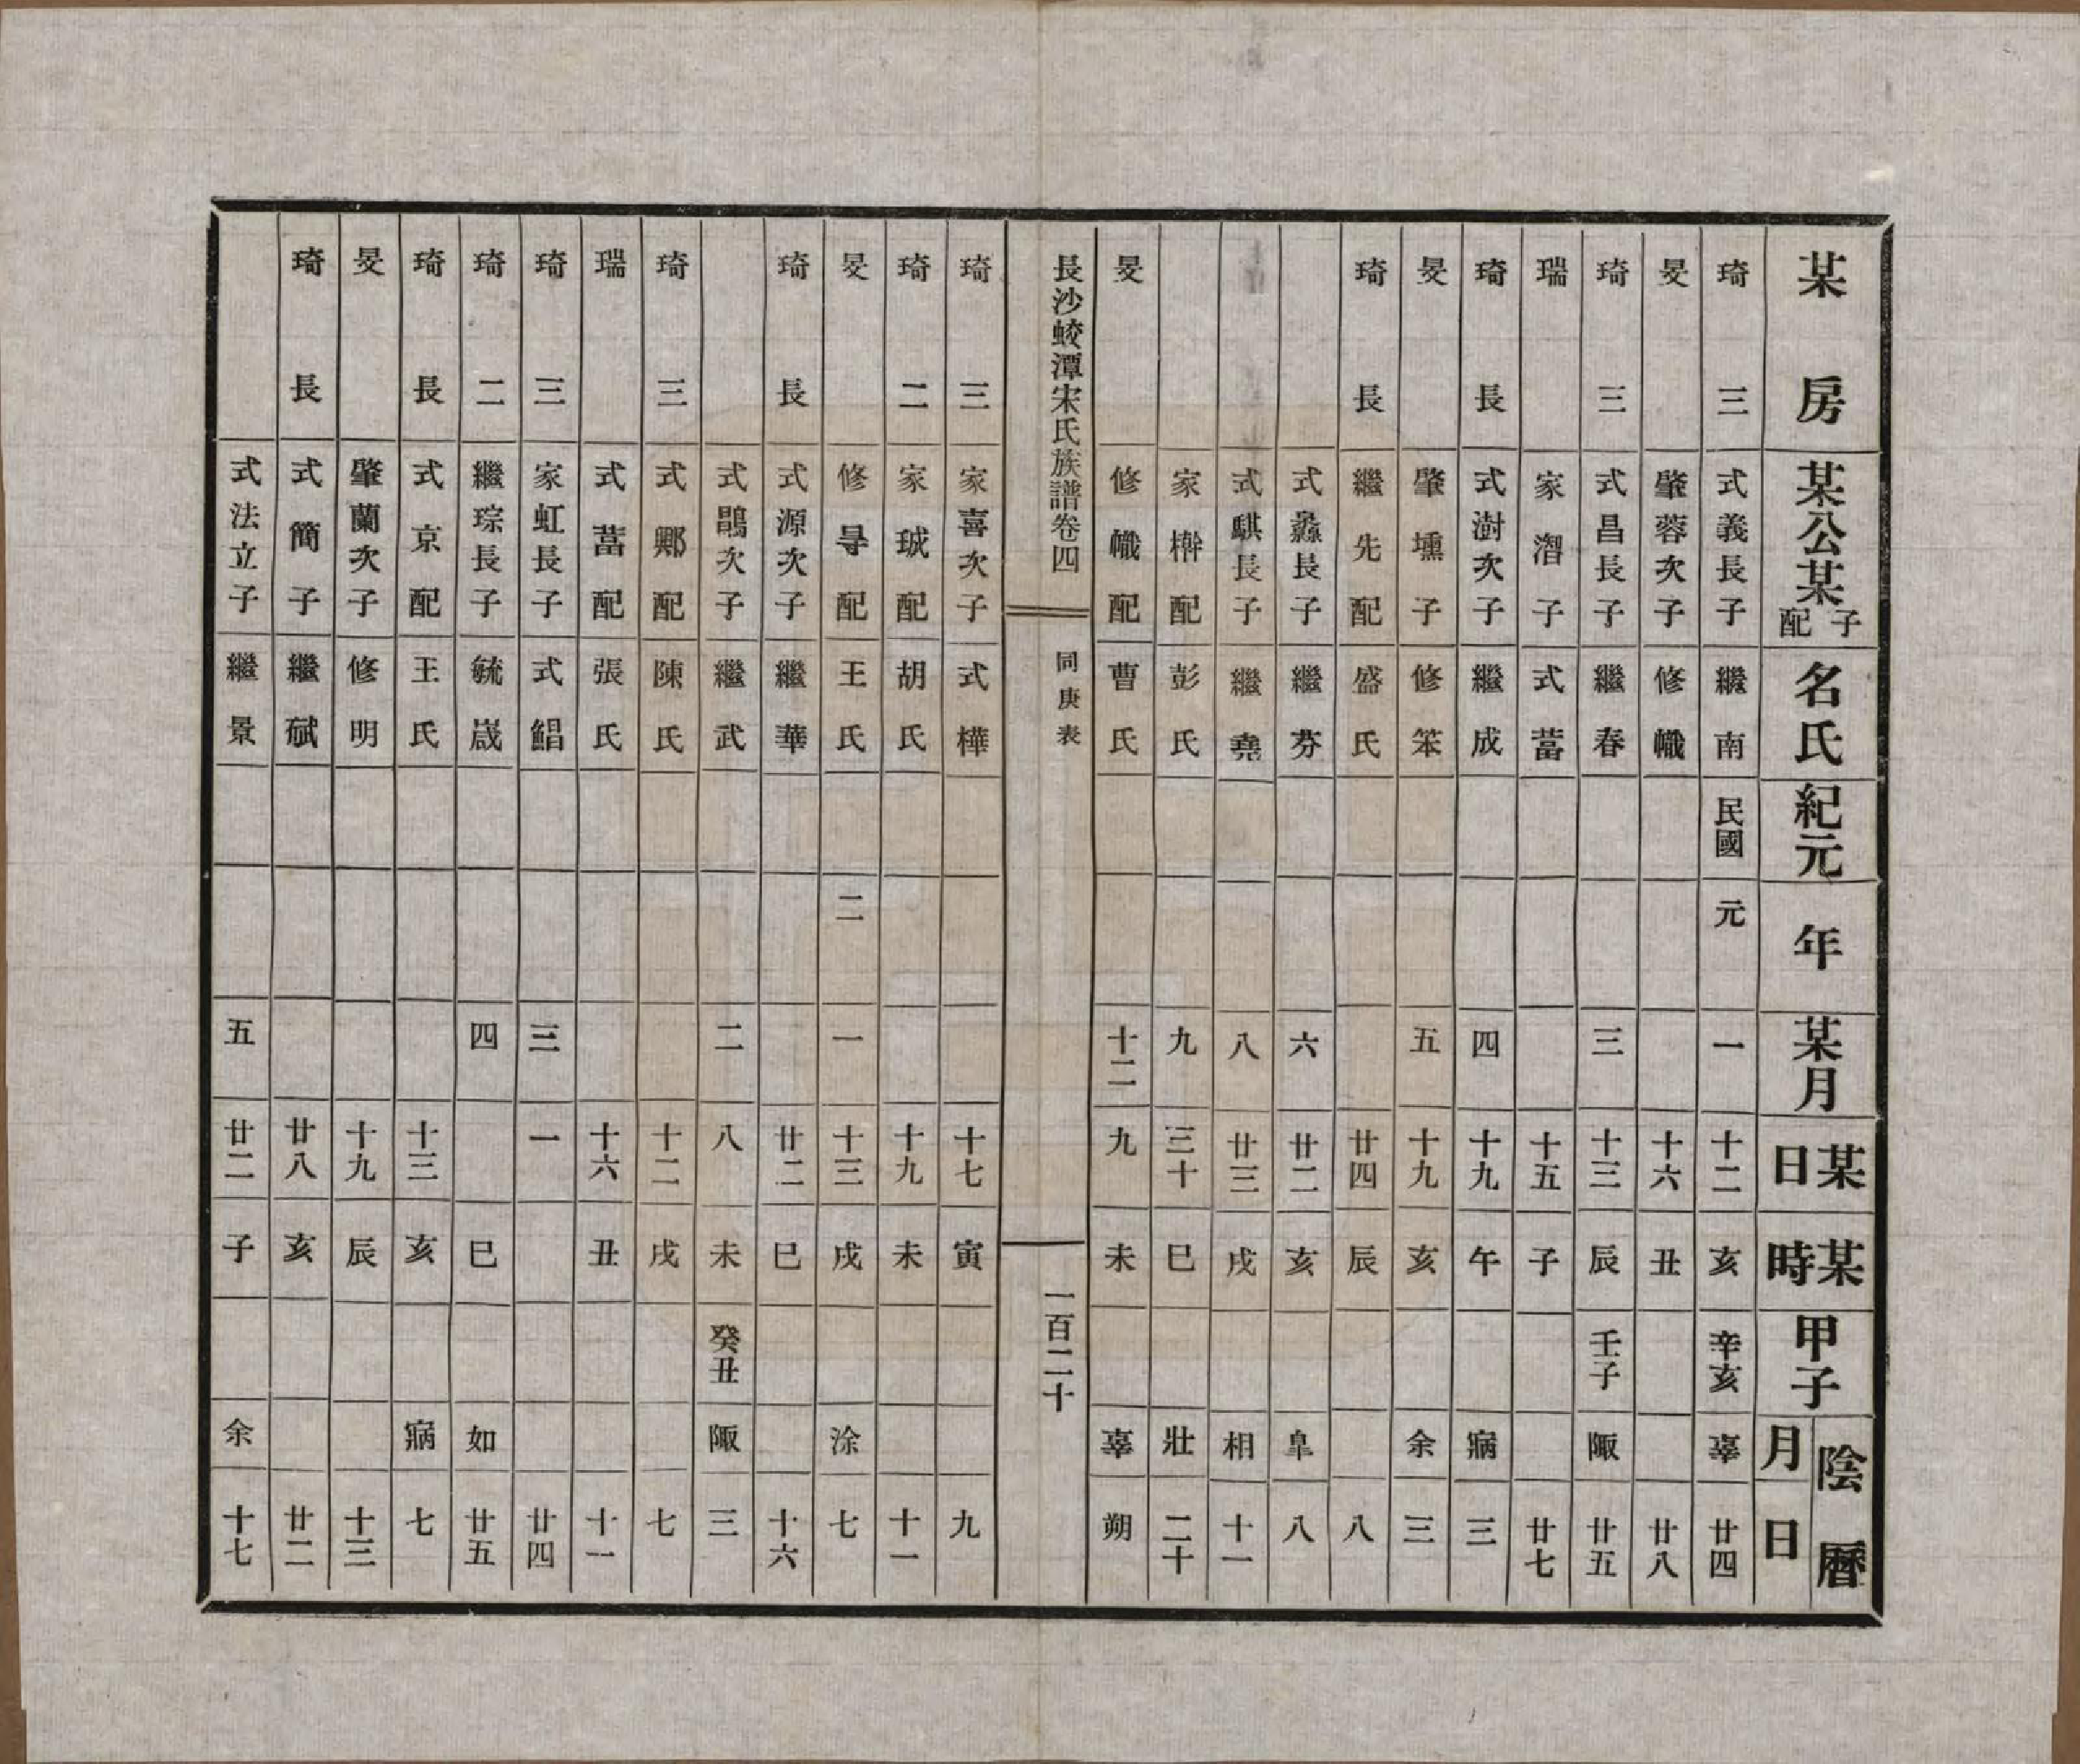 某房 某公某子配 名氏 紀元 年 某月 某日 某時 甲子 陰曆月日
琦 三 式義長子 繼南 民國 元 一 十二 亥 辛亥 辜 廿四
旻 肇蓉次子 修幟 十六 丑 廿八
琦 三 式昌長子 繼春 三 十三 辰 壬子 陬 廿五
瑞 家潪子 式蓄 十五 子 廿七
琦 長 式澍次子 繼成 四 十九 午 寎 三
旻 肇壎子 修笨 五 十九 亥 余 三
琦 長 繼先配 盛氏 廿四 辰 八
式蟸長子 繼芬 六 廿二 亥 皐 八
式騏長子 繼堯 八 廿三 戌 相 十一
家檊配 彭氏 九 三十 巳 壯 二十
旻 修幟配 曹氏 十二 九 未 辜 朔
長沙蛟潭宋氏族譜卷四 同庚表 一百二十
琦 三 家喜次子 式樺 十七 寅 九
琦 二 家珹配 胡氏 十九 未 十一
旻 修㝵配 王氏 二 一 十三 戌 涂 七
琦 長 式源次子 繼華 廿二 巳 十六
式鵾次子 繼武 二 八 未 癸丑 陬 三
琦 三 式鄓配 陳氏 十二 戌 七
瑞 式蓄配 張氏 十六 丑 十一
琦 三 家虹長子 式鯧 三 一 廿四
琦 二 繼琮長子 毓嵗 四 巳 如 廿五
琦 長 式京配 王氏 十三 亥 寎 七
旻 肇蘭次子 修明 十九 辰 十三
琦 長 式簡子 繼斌 廿八 亥 廿二
式法立子 繼景 五 廿二 子 余 十七